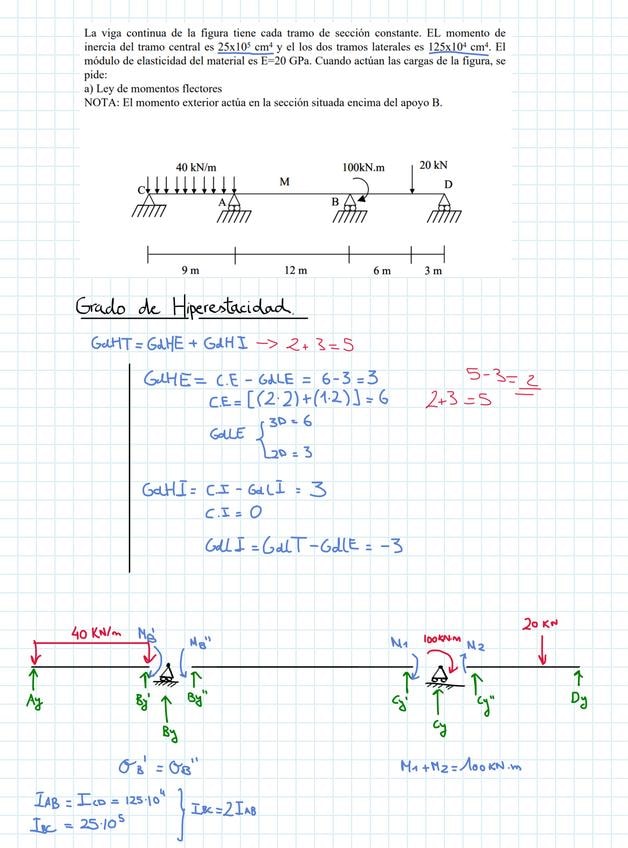 La viga continua de la figura tiene cada tramo de sección constante. EL momento de
inercia del tramo central es 25x10⁵ cm⁴ y el los dos tramos laterales es 125x10⁴ cm⁴. El
módulo de elasticidad del material es E=20 GPa. Cuando actúan las cargas de la figura, se
pide:
a) Ley de momentos flectores
NOTA: El momento exterior actúa en la sección situada encima del apoyo B.
40 kN/m
100kN.m
20 kN
C
M
D
A
B
9 m
12 m
6 m
3 m
Grado de Hiperestacidad.
GdHT = GdHE + GdHI → 2+3=5
GdHE = C.E - GdLE = 6-3=3
5-3=2
C.E = [(2·2)+(1·2)] = 6
2+3=5
GdLE { 3D = 6
2D = 3
GdHI = C.I - GdLI = 3
C.I = 0
GdLI = GdLT - GdLE = -3
40 KN/m
MB'
MB''
M1
100KN.m
M2
20 KN
Ay
By'
By''
By
Cy'
Cy
Cy''
Dy
σB' = σB''
M1 + M2 = 100KN.m
IAB = ICD = 125·10⁴
IBC = 2IAB
IBC = 25·10⁵